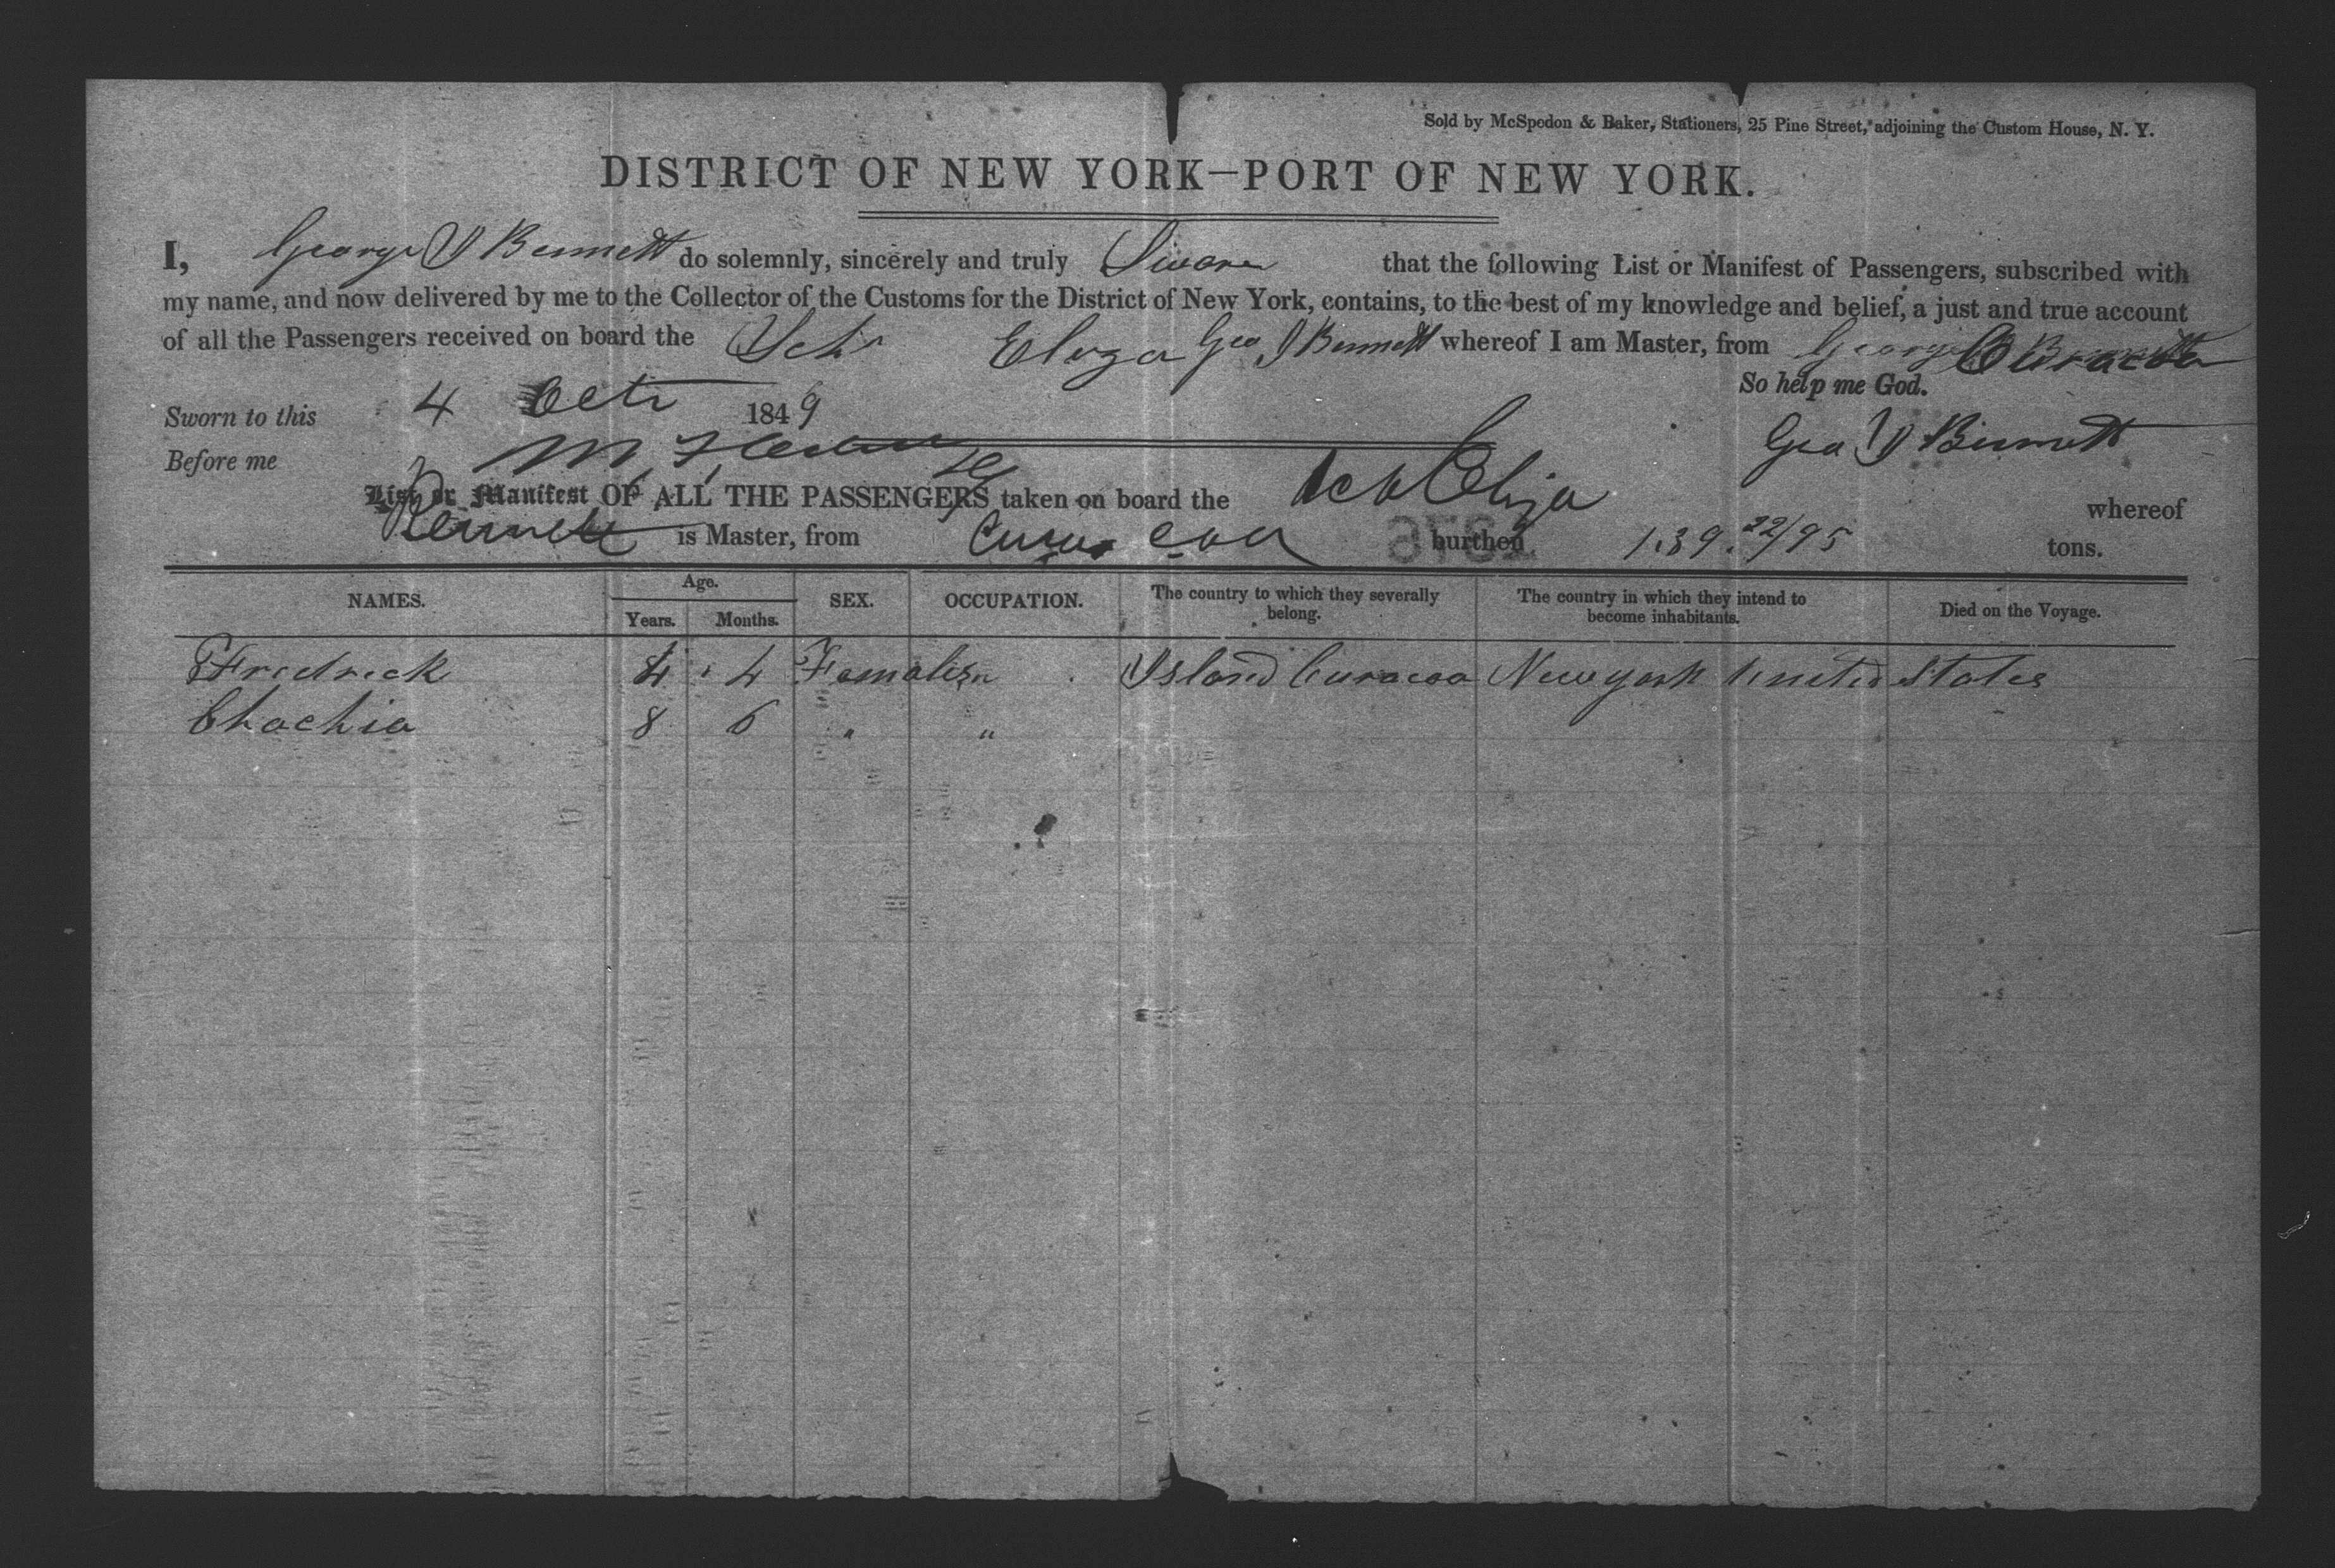 Sold by McSpedon & Baker, Stationers, 25 Pine Street, adjoining the Custom House, N. Y.
DISTRICT OF NEW YORK—PORT OF NEW YORK.
I, George D Bennett do solemnly, sincerely and truly Swore that the following List or Manifest of Passengers, subscribed with
my name, and now delivered by me to the Collector of the Customs for the District of New York, contains, to the best of my knowledge and belief, a just and true account
of all the Passengers received on board the Schr Eliza Geo D Bennett whereof I am Master, from Curacoa
So help me God.
Sworn to this 4 Octr 1849
Geo D Bennett
Before me
List or Manifest OF ALL THE PASSENGERS taken on board the Sch Eliza whereof
Bennett is Master, from Curacoa burthen 139.22/95 tons.
NAMES. Age. Years. Months. SEX. OCCUPATION. The country to which they severally belong. The country in which they intend to become inhabitants. Died on the Voyage.
Fredrick 4 4 Females Island Curacoa New york United States
Chachia 8 6 " "